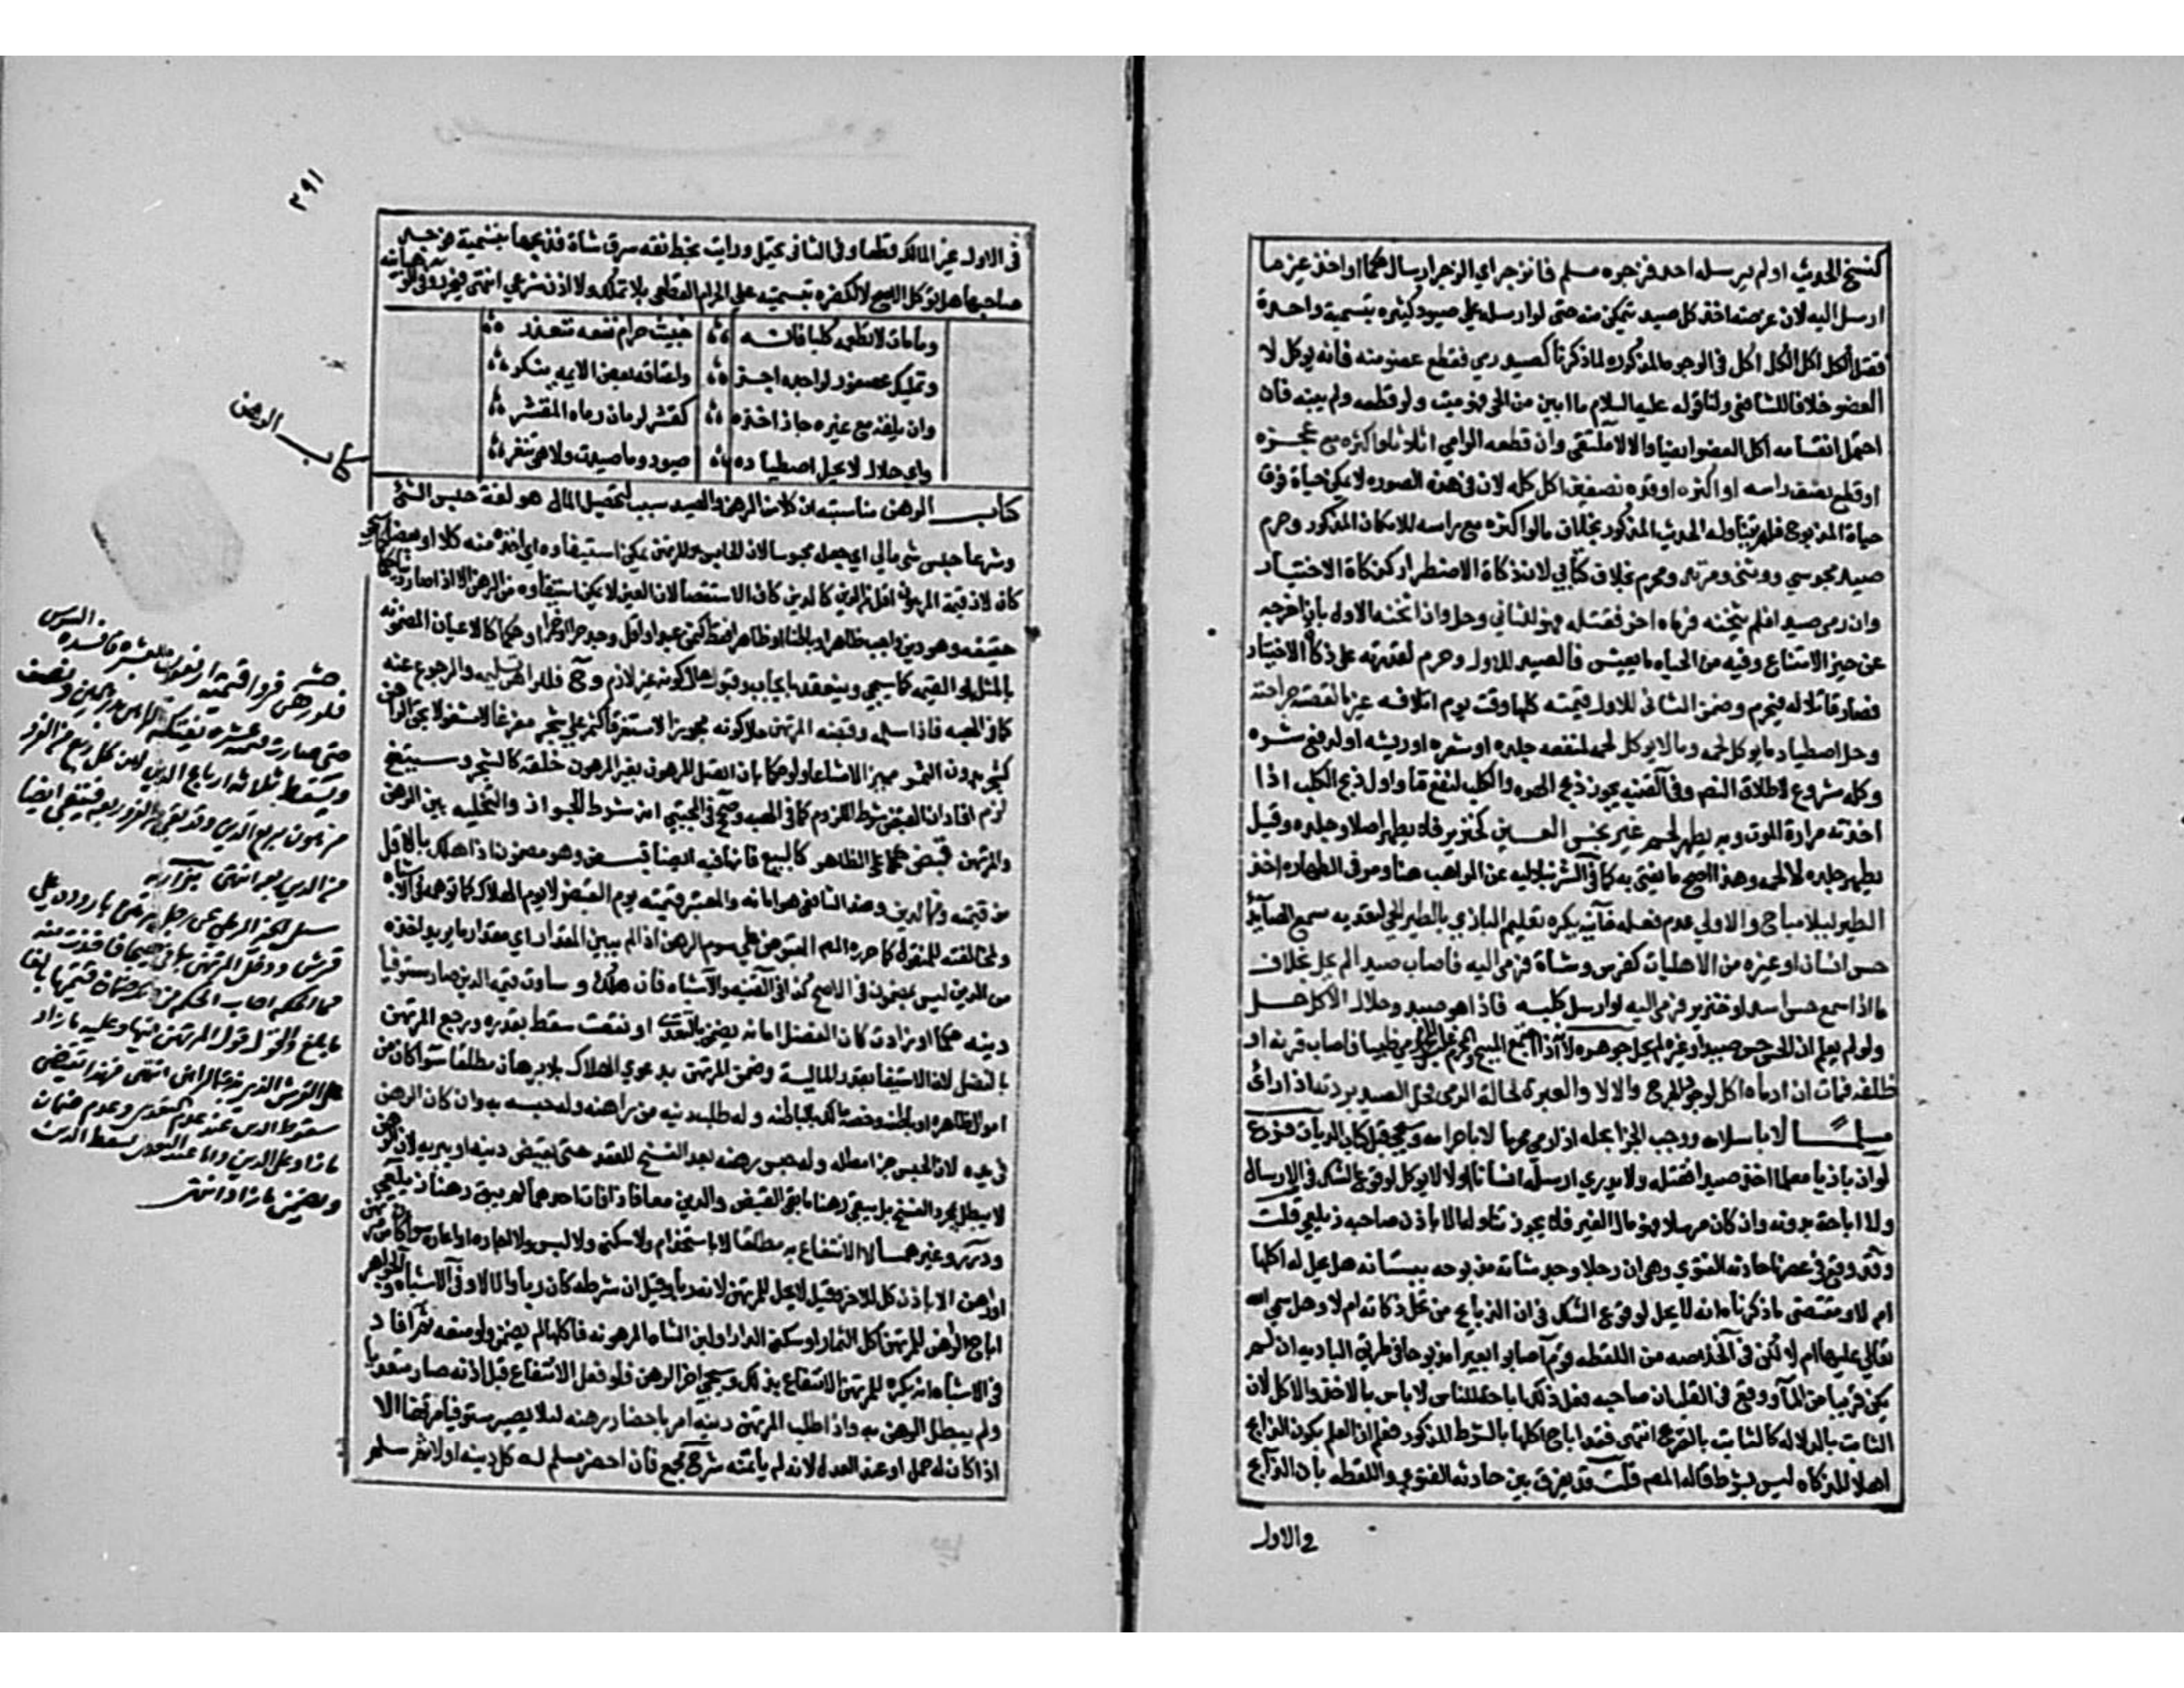 كنسخ الحديث اولم يرسله احد فزجره مسلم فانزجر اي الزجر ارسال حكما او اخذ غير ما
ارسل اليه لان غرضه اخذ كل صيد يتمكن منه حتى لو ارسله على صيود كثيره بتسمية واحدة
فقتل الكل اكل الكل اكل في الوجوه المذكوره لما ذكرنا كصيد رمي فقطع عضو منه فانه يوكل لا
العضو خلافا للشافعي ولنا قوله عليه السلام ما ابين من الحي فهو ميت ولو قطعه ولم يبنه فان
احتمل التئامه اكل العضو ايضا والا لا ملتقى وان قطعه الرامي اثلاثا واكثره مع عجزه
او قطع نصف راسه او اكثره او قده نصفين اكل كله لان في هذه الصوره لا يمكن حياة فوق
حياة المذبوح فلم يتناوله الحديث المذكور بخلاف ما لو اكثره مع راسه للامكان المذكور وحرم
صيد مجوسي ووثني ومرتد ومحرم بخلاف كتابي لان ذكاة الاضطرار كذكاة الاختيار
وان رمى صيدا فلم يثخنه فرماه اخر فقتله فهو للثاني وحل وان اثخنه الاول بان اخرجه
عن حيز الامتناع وفيه من الحياه ما يعيش فالصيد للاول وحرم لقدرته على ذكاة الاختيار
فصار قاتلا له فيحرم وضمن الثاني للاول قيمته كلها وقت يوم اتلافه غير ما نقصته جراحته
وحل اصطياد ما يوكل لحمه وما لا يوكل لحمه لمنفعه جلده او شعره او ريشه او لدفع شره
وكله مشروع لاطلاق النص وفي القنيه يجوز ذبح الهره والكلب لنفع ما واولى ذبح الكلب اذا
اخذته مرارة الموت وبه يطهر لحم غير نجس العين كخنزير فلا يطهر اصلا وجلده وقيل
يطهر جلده لا لحمه وهذا اصح ما يفتى به كما في الشرنبلاليه عن المواهب هنا ومر في الطهاره اخذ
الطير ليلا مباح والاولى عدم فعله خانيه يكره تعليم البازي بالطير الحي لتعذيبه سمع الصايد
حس انسان او غيره من الاهليات كفرس وشاة فرمى اليه فاصاب صيدا لم يحل بخلاف
ما اذا سمع حس اسد او خنزير فرمى اليه او ارسل كلبه فاذا هو صيد وحلال الاكل حل
ولو لم يعلم ان الحس حس صيد او غيره لم يحل جوهره لانه اذا اجتمع المبيح والمحرم غلب المحرم رمى ظبيا فاصاب قرنه او
ظلفه فمات ان ادماه اكل لوجود الجرح والا لا والعبرة لحالة الرمي فحل الصيد بردته اذا رمى
مسلما لا باسلامه ووجب الجزا بحله اذا رمى محرما لا باحرامه وسيجي قبيل كتاب الديات فروع
لو ان بازيا معلما اخذ صيدا فقتله ولا يدري ارسله انسان اولا لا يوكل لوقوع الشك في الارسال
ولا اباحة بدونه وان كان مرسلا فهو مال الغير فلا يجوز تناوله الا باذن صاحبه زيلعي قلت
وقد وقع في عصرنا حادثه الفتوي وهي ان رجلا وجد شاته مذبوحه ببستانه هل يحل له اكلها
ام لا ومقتضى ما ذكرناه انه لا يحل لوقوع الشك في ان الذابح من تحل ذكاته ام لا وهل سمى الله
تعالى عليها ام لا لكن في الخلاصه من اللقطه قوم اصابوا بعيرا مذبوحا في طريق الباديه ان لم
يكن قريبا من الماء ووقع في القلب ان صاحبه فعل ذلك اباحة للناس لا باس بالاخذ والاكل لان
الثابت بالدلاله كالثابت بالصريح انتهى فقد اباح اكلها بالشرط المذكور فعلم ان العلم بكون الذابح
اهلا للذكاه ليس بشرط قاله المص قلت قد يفرق بين حادثه الفتوي واللقطه بان الذابح
في الاول
٢٩١
في الاول غير المالك قطعا وفي الثاني يحتمل ورايت بخط ثقه سرق شاة فذبحها بتسمية فوجد
صاحبها هل توكل الاصح لا لكفره بتسميته على الحرام القطعي بلا تملك ولا اذن شرعي انتهى فليحرر وفي الوهبانيه
وما مات لا تطعمه كلبا فانه خبيث حرام نفعه متعذر
وتمليك عصفور لواجده اجز واعتاقه بعض الايمه ينكر
وان يلقه مع غيره جاز اخذه كقشر لرمان رماه المقشر
واي حلال لا يحل اصطياده صيود وما صيدت ولا هي تنفر
كتاب الرهن
كتاب الرهن مناسبته ان كلا من الرهن والصيد سبب لتحصيل المال هو لغة حبس الشئ
وشرعا حبس شئ مالي اي جعله محبوسا لان الحابس هو المرتهن يمكن استيفاوه اي اخذه منه كلا او بعضا
كان لان قيمة المرهون اقل من الدين كالدين كاف الاستقصا لان العين لا يمكن استيفاوه من الرهن الا اذا صار دينا حكما
حقيقه وهو دين واجب ظاهرا وباطنا او ظاهرا فقط كثمن عبد او خل وجد حرا او خمرا او حكما كالاعيان المضمونه
بالمثل او القيمه كما سيجي وينعقد بايجاب وقبول حال كونه غير لازم وح فللراهن تسليمه والرجوع عنه
كما في الهبه فاذا سلمه وقبضه المرتهن حال كونه محوزا لا متفرقا كثمر على شجر مفرغا لا مشغولا بحق الراهن
كشجر بدون الثمر مميزا لا مشاعا ولو حكما بان اتصل المرهون بغير المرهون خلقة كالشجر وسيتضح
لزم افاد ان القبض شرط اللزوم كما في الهبه وصحح في المجتبى انه شرط الجواز والتخليه بين الرهن
والمرتهن قبض حكما على الظاهر كالبيع فانها فيه ايضا قبض وهو مضمون اذا هلك بالاقل
من قيمته ومن الدين وعند الشافعي هو امانه والمعتبر قيمته يوم القبض لا يوم الهلاك كما توهمه في الاشباه
لمخالفته للمنقول كما حرره المص المقبوض على سوم الرهن اذا لم يبين المقدار اي مقدار ما يريد اخذه
من الدين ليس بمضمون في الاصح كذا في القنيه والاشباه فان هلك و ساوت قيمته الدين صار مستوفيا
دينه حكما او زادت كان الفضل امانه يضمن بالتعدي او نقصت سقط بقدره ورجع المرتهن
بالفضل لان الاستيفا بقدر الماليه وضمن المرتهن بدعوي الهلاك بلا برهان مطلقا سوا كان من
اموال ظاهره او باطنه وخصه مالك بالباطنه وله طلب دينه من راهنه وله حبسه به وان كان الرهن
في يده لان الحبس جزا مطله وله حبس رهنه بعد الفسخ للعقد حتى يقبض دينه او يبريه لان الرهن
لا يبطل بمجرد الفسخ بل يبقى رهنا ما بقي القبض والدين معا فاذا فات احدهما لم يبق رهنا زيلعي
ودرر وغيرهما لا الانتفاع به مطلقا لا باستخدام ولا سكنى ولا لبس ولا اجاره ولا اعاره سوا كان من مرتهن
او راهن الا باذن كل للاخر وقيل لا يحل للمرتهن لانه ربا وقيل ان شرطه كان ربا والا لا وفي الاشباه والجواهر
اباح الراهن للمرتهن اكل الثمار او سكنى الدار او لبن الشاه المرهونه فاكلها لم يضمن وله منعه ثم افاد
في الاشباه انه يكره للمرتهن الانتفاع بذلك وسيجي اخر الرهن فلو فعل الانتفاع قبل اذنه صار متعديا
ولم يبطل الرهن به واذا طلب المرتهن دينه امر باحضار رهنه ليلا يصير مستوفيا مرتين الا
اذا كان له حمل او عند العدل لانه لم ياتمنه شرح مجمع فان احضر مسلم له كل دينه اولا ثم سلم